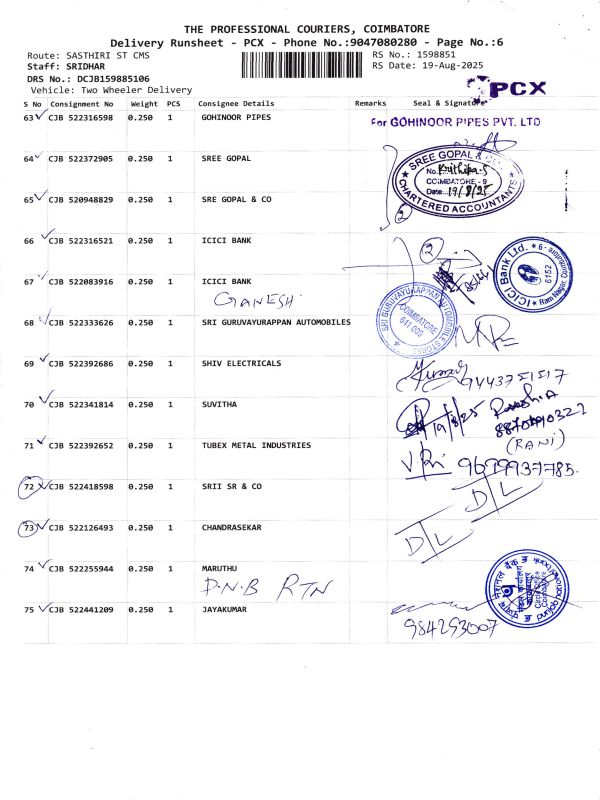 THE PROFESSIONAL COURIERS, COIMBATORE
Delivery Runsheet - PCX - Phone No.:9047080280 - Page No.:6
Route: SASTHIRI ST CMS
RS No.: 1598851
Staff: SRIDHAR
RS Date: 19-Aug-2025
DRS No.: DCJB159885106
Vehicle: Two Wheeler Delivery
PCX
S No Consignment No Weight PCS Consignee Details Remarks Seal & Signature
63 CJB 522316598 0.250 1 GOHINOOR PIPES
For GOHINOOR PIPES PVT. LTD
64 CJB 522372905 0.250 1 SREE GOPAL
SREE GOPAL & CO.
No. Krithika.S
COIMBATORE - 9
Date 19/8/25
CHARTERED ACCOUNTANTS
2
65 CJB 520948829 0.250 1 SRE GOPAL & CO
66 CJB 522316521 0.250 1 ICICI BANK
2
ICICI Bank Ltd.
6152
Ram Nagar, Coimbatore - 9
67 CJB 522083916 0.250 1 ICICI BANK
GANESH
68 CJB 522333626 0.250 1 SRI GURUVAYURAPPAN AUTOMOBILES
SRI GURUVAYURAPPAN AUTOMOBILE STORES
COIMBATORE
641 009
69 CJB 522392686 0.250 1 SHIV ELECTRICALS
Kumar 9443751517
70 CJB 522341814 0.250 1 SUVITHA
19/8/25
8870490322
(RANI)
71 CJB 522392652 0.250 1 TUBEX METAL INDUSTRIES
9699937785.
72 CJB 522418598 0.250 1 SRII SR & CO
D/L
73 CJB 522126493 0.250 1 CHANDRASEKAR
D/L
74 CJB 522255944 0.250 1 MARUTHU
P.N.B RTN
punjab national bank
75 CJB 522441209 0.250 1 JAYAKUMAR
984293007